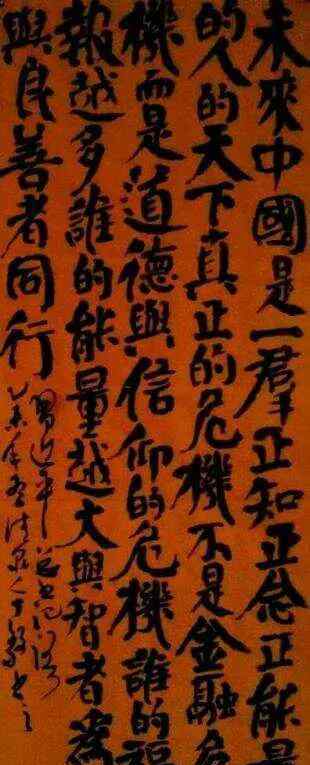 未來中國是一羣正知正念正能量
的人的天下真正的危機不是金融危
機而是道德與信仰的危機誰的福
報越多誰的能量越大與智者為
與良善者同行
習近平
乙未年冬